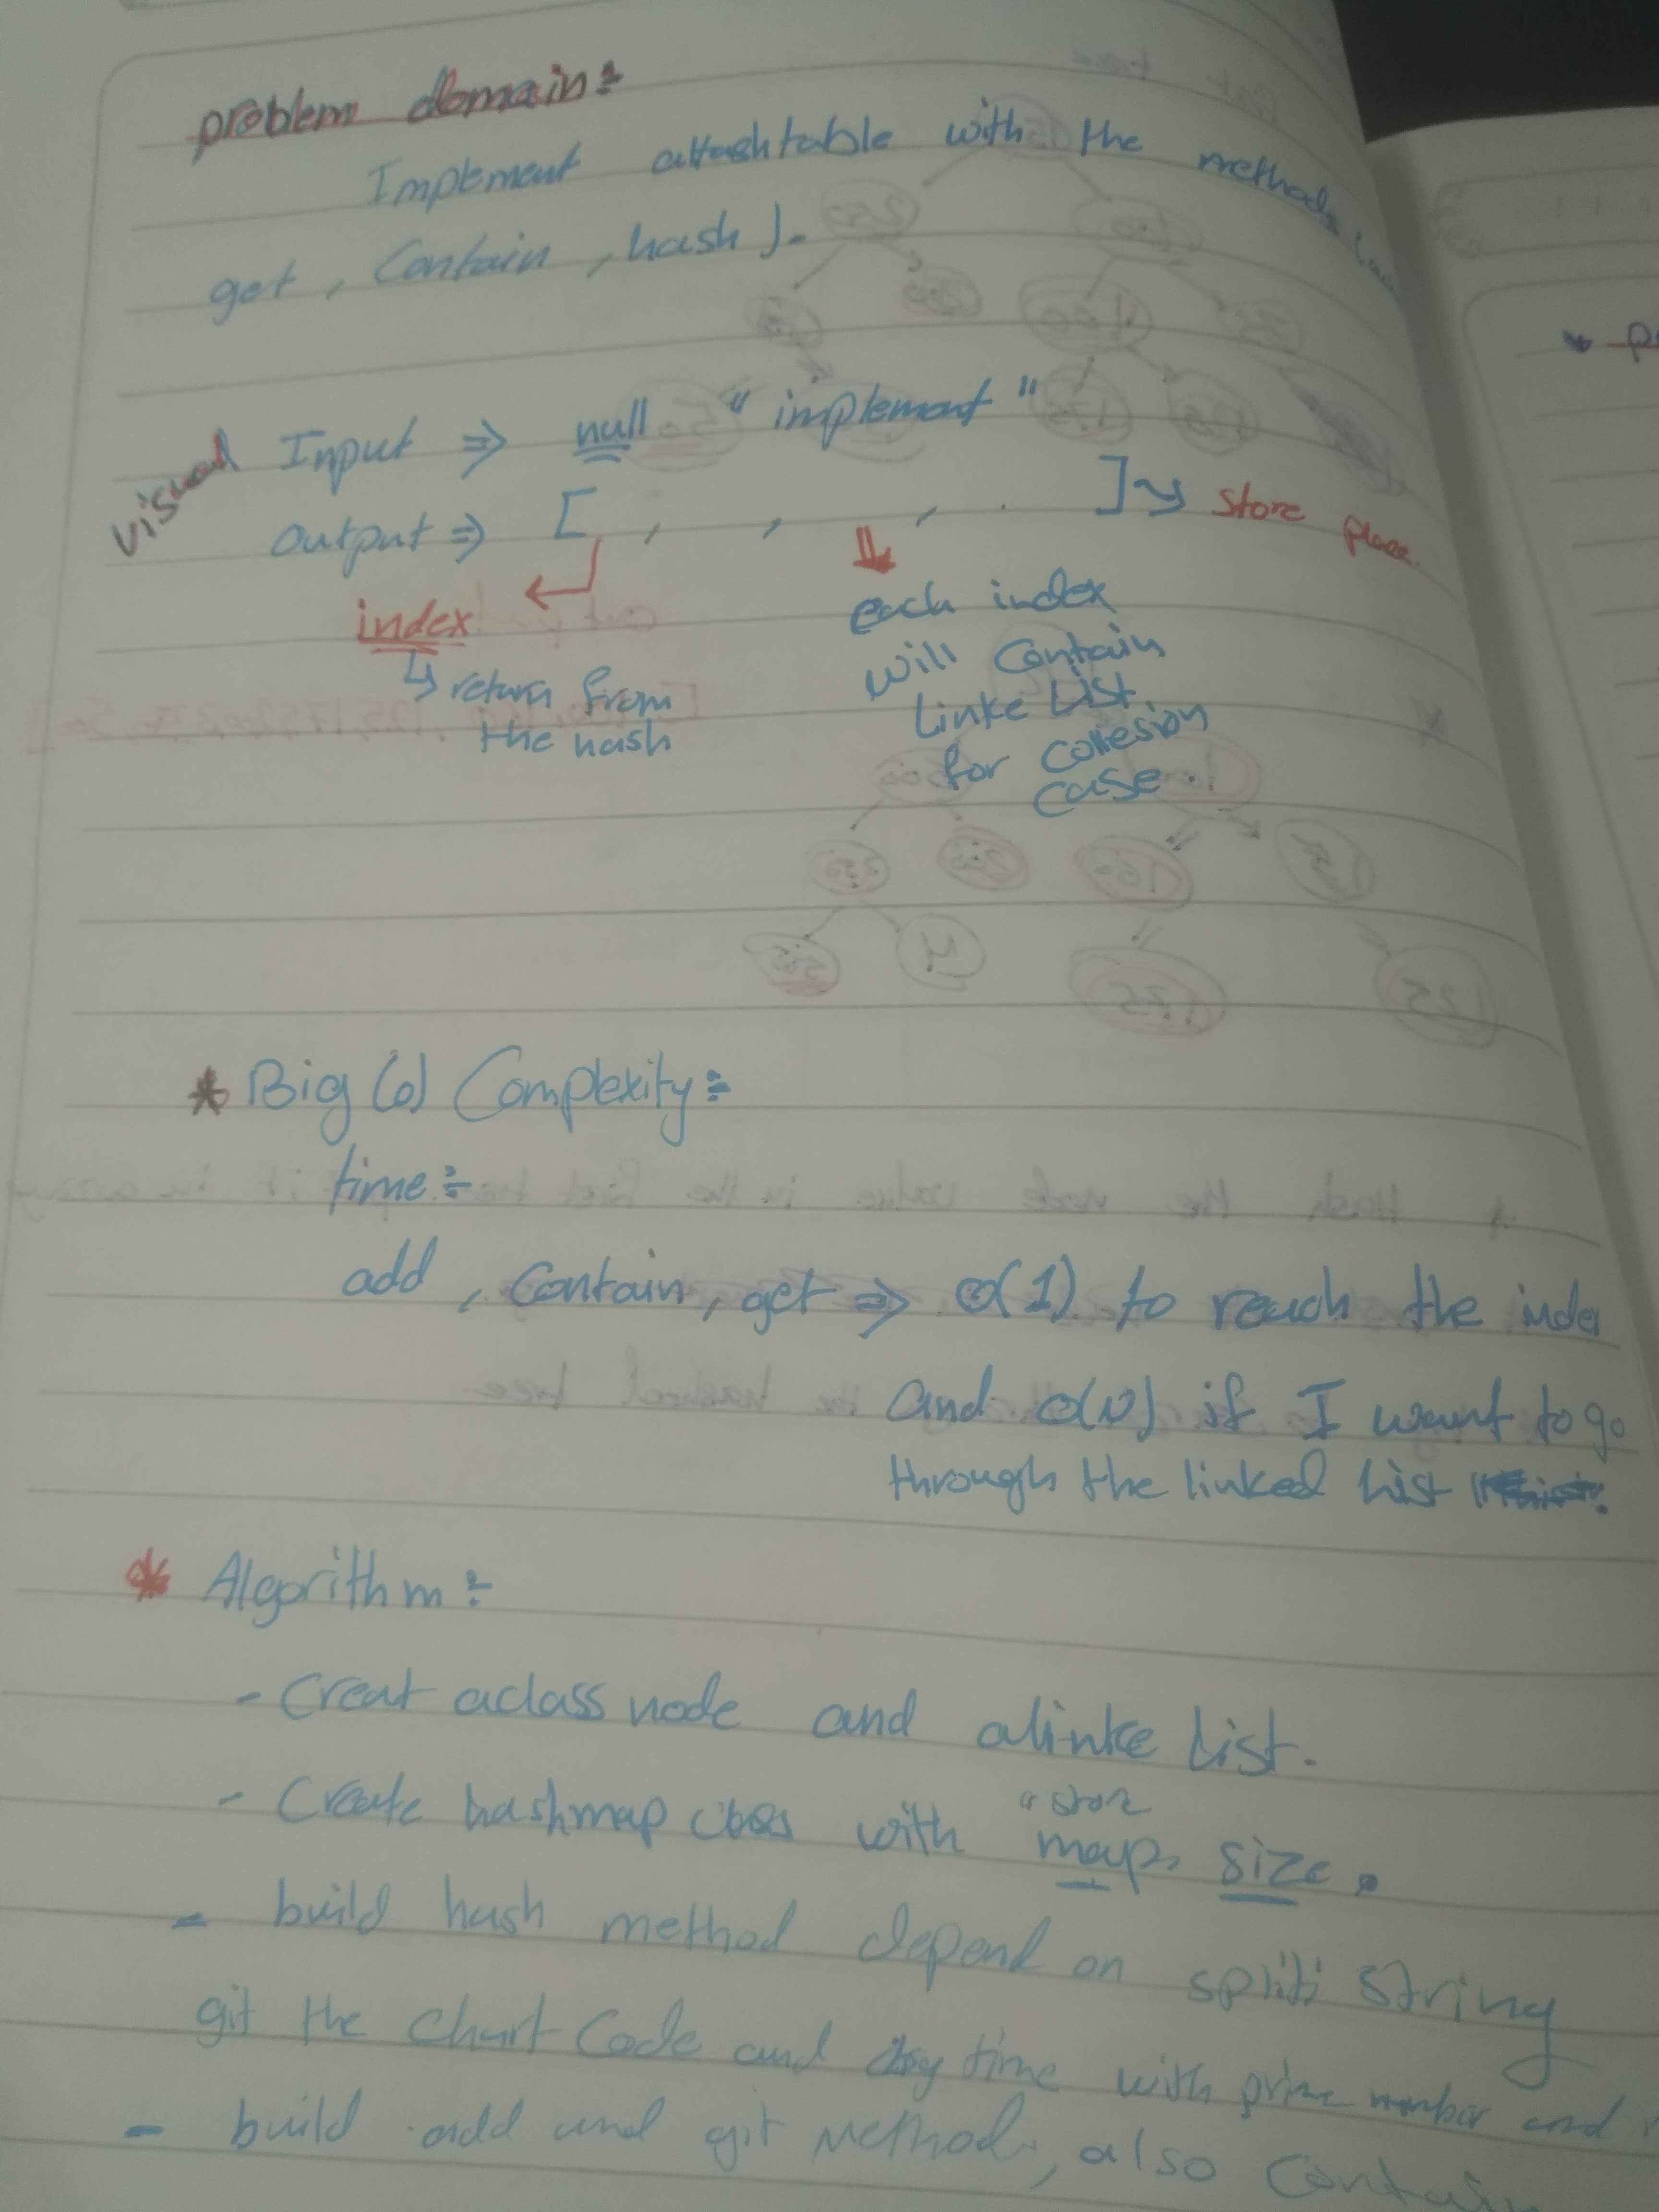 problem domain:
Implement a Hashtable with the methods (
get , Contain , hash ).
Visual Input ⇒ null "implement"
Output ⇒ [ , , , . ] Store place.
index
each index
will Contain
Linke List
for collesion
case.
return from
the hash
* Big (o) Complexity:
time:
add , Contain, get ⇒ O(1) to reach the index
and O(N) if I want to go
through the linked list
* Algorithm:
- Creat a class node and a linke List.
"stor
- Create hashmap class with map, size.
- build hash method depend on split string
git the Chart Code and time with prime number and
- build add and git Method, also Contain